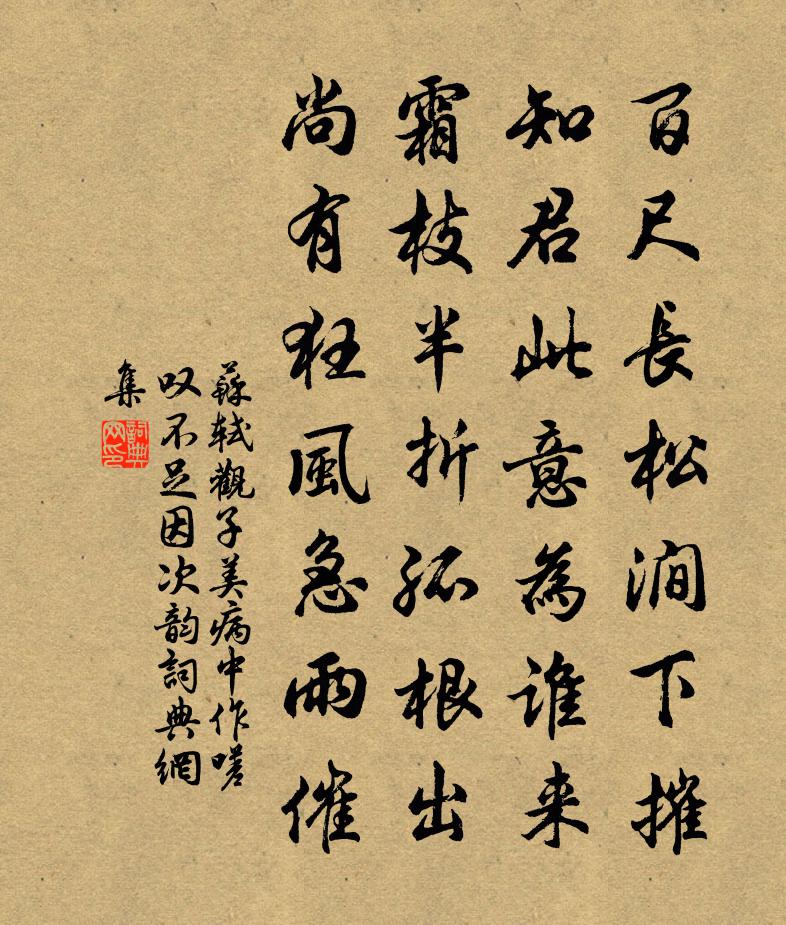 百尺長松澗下摧
知君此意為誰来
霜枝半折孤根出
尚有狂風急雨催
蘇軾觀子美病中作嗟
叹不足因次韵詞典網
集
詞典网印